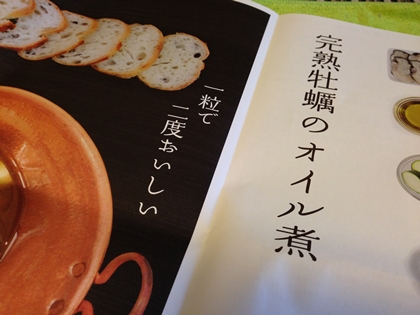 完熟牡蠣のオイル煮
一粒で
二度おいしい